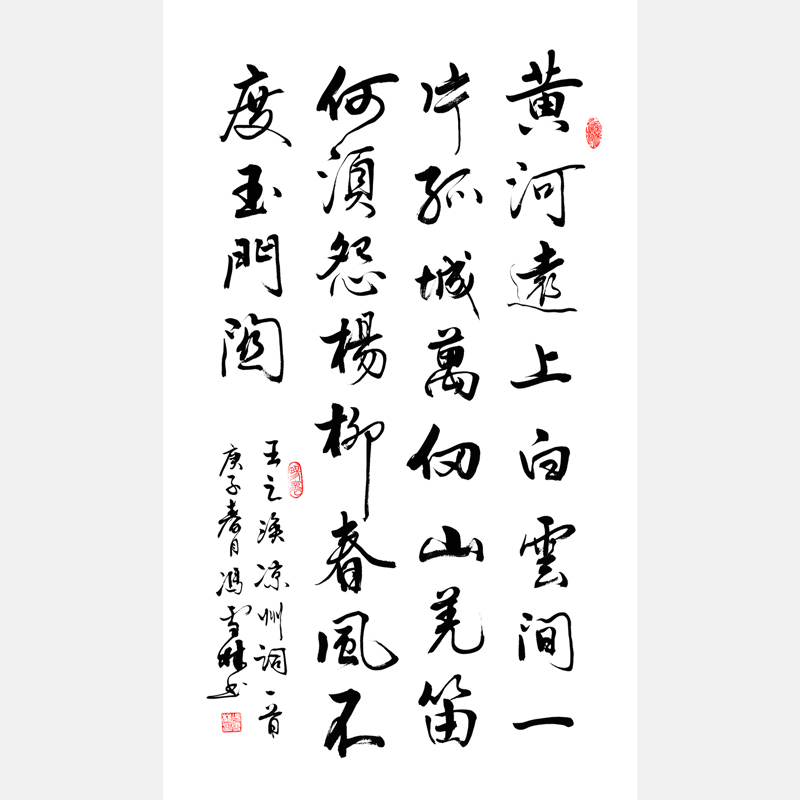 黄河遠上白雲間一
片孤城萬仞山羌笛
何須怨楊柳春風不
度玉門關
王之渙凉州詞一首
庚子春月馮雪林书